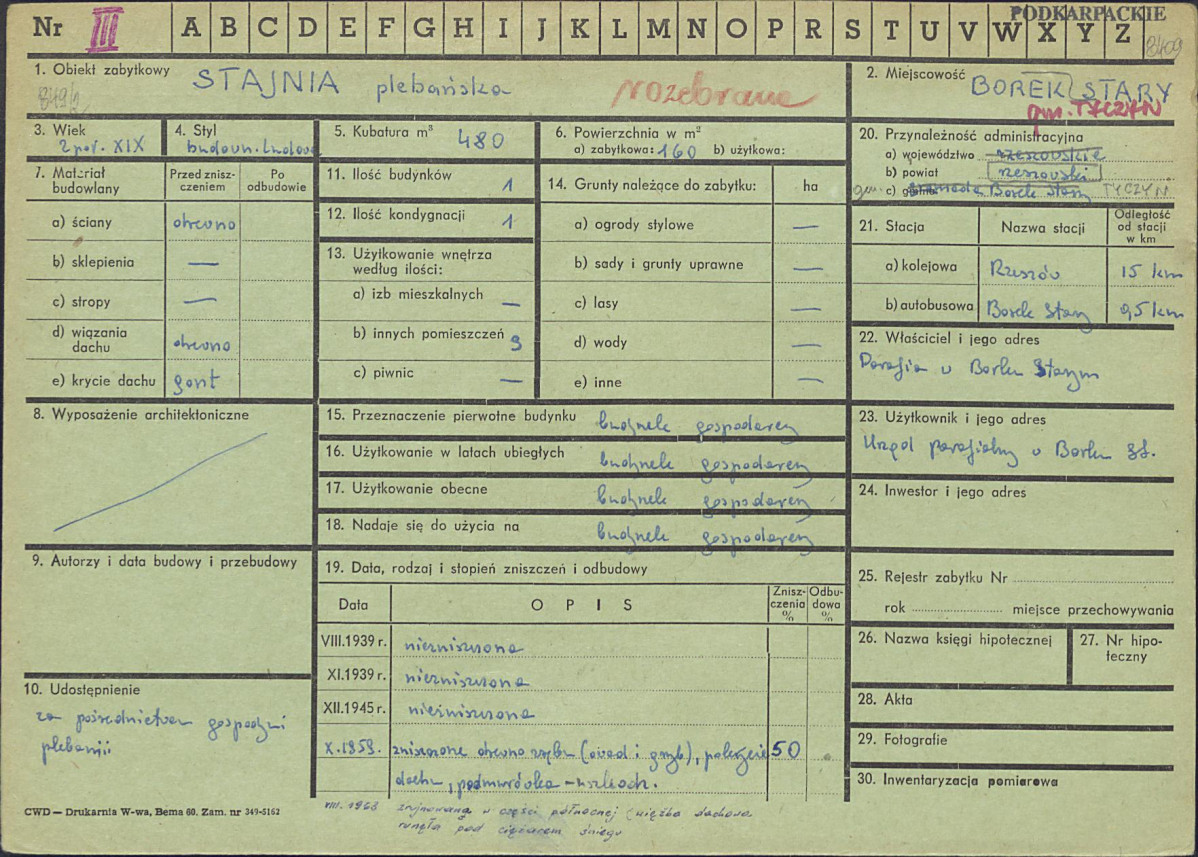 PODKARPACKIE
Nr III A B C D E F G H I J K L M N O P R S T U V W X Y Z
8409
1. Obiekt zabytkowy STAJNIA plebańska rozebrana
849/2
2. Miejscowość BOREK STARY
gm. TYCZYN
3. Wiek
2 poł. XIX
4. Styl
budown. ludowe
5. Kubatura m³ 480
6. Powierzchnia w m²
a) zabytkowa: 160 b) użytkowa:
7. Materiał budowlany
Przed zniszczeniem
Po odbudowie
a) ściany drewno
b) sklepienia —
c) stropy —
d) wiązania dachu drewno
e) krycie dachu gont
8. Wyposażenie architektoniczne
9. Autorzy i data budowy i przebudowy
10. Udostępnienie
za pośrednictwem gospodyni
plebanii
11. Ilość budynków 1
12. Ilość kondygnacji 1
13. Użytkowanie wnętrza
według ilości:
a) izb mieszkalnych —
b) innych pomieszczeń 3
c) piwnic —
14. Grunty należące do zabytku: ha
a) ogrody stylowe —
b) sady i grunty uprawne —
c) lasy —
d) wody —
e) inne —
15. Przeznaczenie pierwotne budynku budynek gospodarczy
16. Użytkowanie w latach ubiegłych budynek gospodarczy
17. Użytkowanie obecne budynek gospodarczy
18. Nadaje się do użycia na budynek gospodarczy
19. Data, rodzaj i stopień zniszczeń i odbudowy
Data OPIS Zniszczenia % Odbudowa %
VIII.1939 r. niezniszczona
XI.1939 r. niezniszczona
XII.1945 r. niezniszczona
X.1959. zniszczone drewno zrębu (owad i grzyb), pokrycie 50
dachu, podmurówka
VIII. 1963 zrujnowana w części północnej (więźba dachowa
runęła pod ciężarem śniegu
20. Przynależność administracyjna
a) województwo rzeszowskie
b) powiat rzeszowski
gm. c) gromada Borek Stary TYCZYN
21. Stacja Nazwa stacji Odległość od stacji w km
a) kolejowa Rzeszów 15 km
b) autobusowa Borek Stary 0,5 km
22. Właściciel i jego adres
Parafia w Borku Starym
23. Użytkownik i jego adres
Urząd parafialny w Borku St.
24. Inwestor i jego adres
25. Rejestr zabytku Nr
rok miejsce przechowywania
26. Nazwa księgi hipotecznej
27. Nr hipoteczny
28. Akta
29. Fotografie
30. Inwentaryzacja pomiarowa
CWD — Drukarnia W-wa, Bema 60. Zam. nr 349-5162